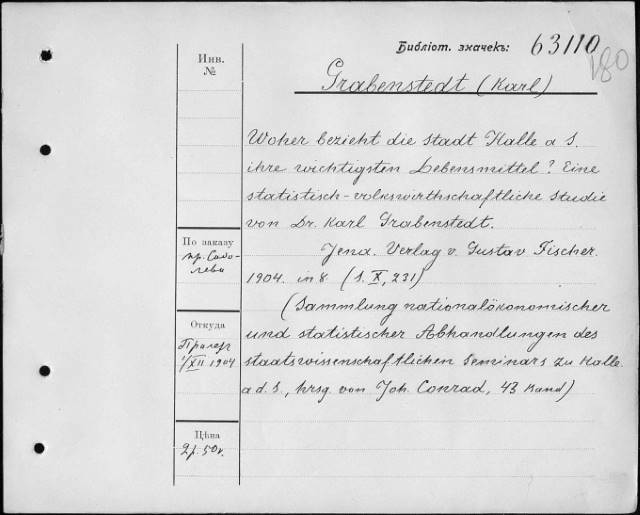 Библiот. значекъ: 63110
180
Инв.
№
Grabenstedt (Karl)
Woher bezieht die Stadt Halle a S.
ihre wichtigsten Lebensmittel? Eine
statistisch-volkswirthschaftliche Studie
von Dr. Karl Grabenstedt.
Jena. Verlag v. Gustav Fischer.
1904. in 8 (S. X, 231)
(Sammlung nationalökonomischer
und statistischer Abhandlungen des
staatswissenschaftlichen Seminars zu Halle
a. d. S., hrsg. von Joh. Conrad, 43 Band)
По заказу
пр. Собо-
лева
Откуда
1/XII 1904
Цѣна
2р. 50к.